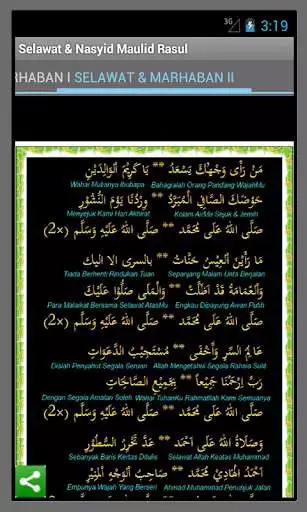 3G 3:19
Selawat & Nasyid Maulid Rasul
RHABAN I SELAWAT & MARHABAN II
مَنْ رَأَى وَجْهُكَ يَسْعَدُ ** يَا كَرِيْمُ الْوَالِدَيْنِ
Wahai Mulianya Ibubapa Bahagialah Orang Pandang WajahMu
حَوْضُكَ الصَّافِي الْمُبَرَّدُ ** وِرْدُنَا يَوْمَ النُّشُوْرِ
Menjejuk Kami Hari Akhirat Kolam AirMu Sejuk & Jernih
صَلَّى اللهُ عَلَى مُحَمَّد ** صَلَّى اللهُ عَلَيْهِ وَسَلَّم (2×)
مَا رَأَيْنَ الْعِيْسُ حَنَّاتُ ** بالسرى الا اليك
Tiada Berhenti Rindukan Tuan Sepanjang Malam Unta Berjalan
وَالْغَمَامَةُ قَدْ اَظَلَّتْ ** وَالْمَلَى صَلُّوْا عَلَيْكَ
Para Malaikat Bersama Selawat AtasMu Engkau Dipayung Awan Putih
صَلَّى اللهُ عَلَى مُحَمَّد ** صَلَّى اللهُ عَلَيْهِ وَسَلَّم (2×)
عَالِمُ السِّرِّ وَأَخْفَى ** مُسْتَجِيْبُ الدَّعَوَاتِ
Disiah Penyahut Segala Seruan Allah Mengetahui Segala Rahsia Sulit
رَبِّ ارْحَمْنَا جَمِيْعاً ** بِجَمِيْعِ الصَّالِحَاتِ
Dengan Segala Amalan Soleh Wahai TuhanKu Rahmatilah Kami Semuanya
صَلَّى اللهُ عَلَى مُحَمَّد ** صَلَّى اللهُ عَلَيْهِ وَسَلَّم (2×)
وَصَلَاةُ اللهِ عَلَى اَحْمَد ** عَدَّ تَحْرِيْرِ السُّطُوْرِ
Sebanyak Baris Kertas Ditulis Selawat Allah Keatas Muhammad
اَحْمَدُ الْهَادِيْ مُحَمَّد ** صَاحِبُ الْوَجْهِ الْمُنِيْرِ
Empunya Wajah Yang Berseri Ahmad Muhammad Penunjuk Jalan
صَلَّى اللهُ عَلَى مُحَمَّد ** صَلَّى اللهُ عَلَيْهِ وَسَلَّم (2×)